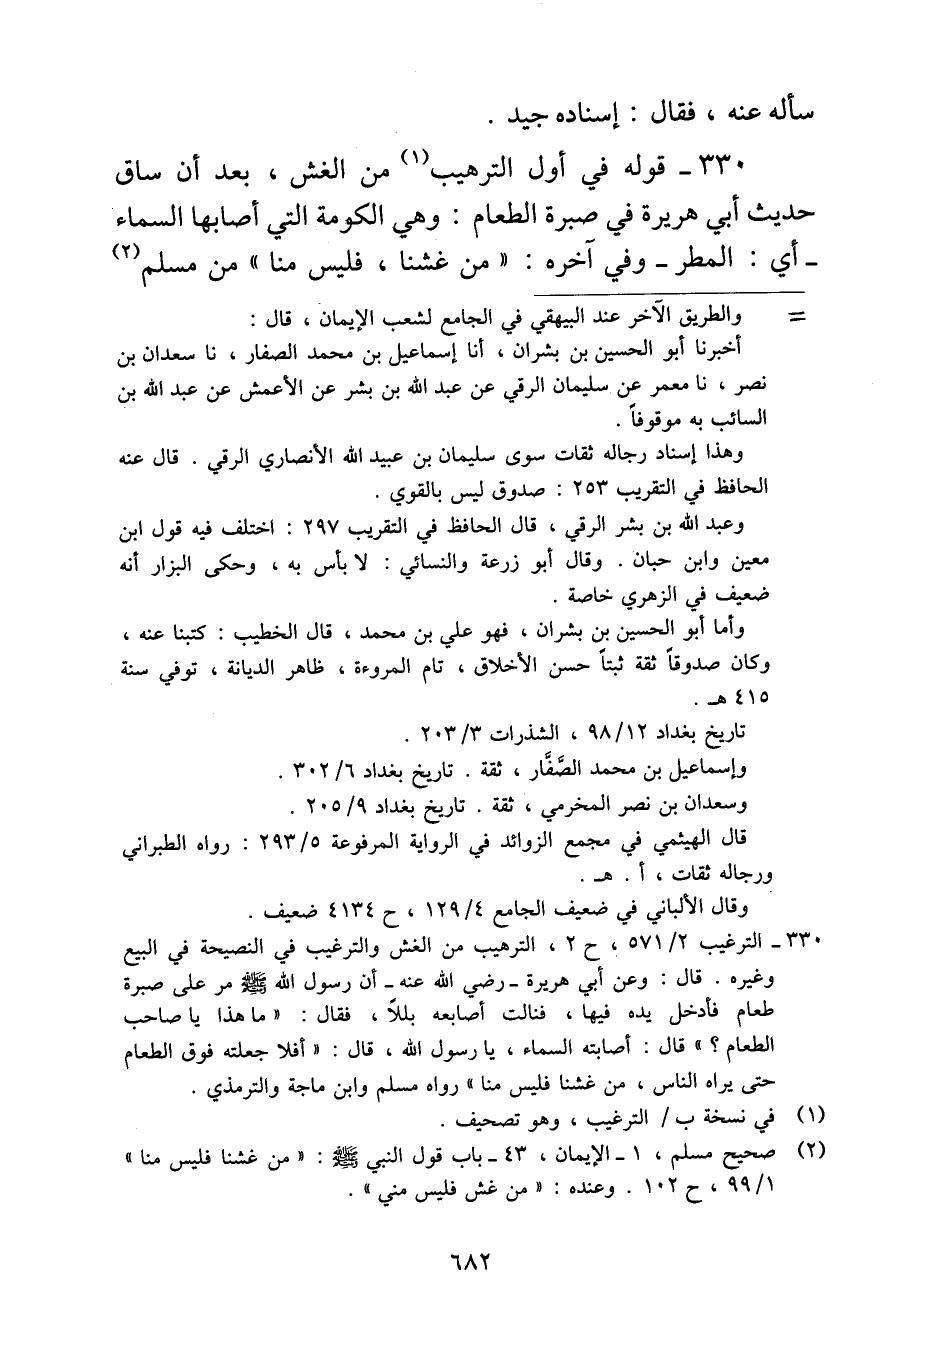 سأله عنه ، فقال : إسناده جيد .
٣٣٠ ـ قوله في أول الترهيب(١) من الغش ، بعد أن ساق
حديث أبي هريرة في صبرة الطعام : وهي الكومة التي أصابها السماء
ـ أي : المطر ـ وفي آخره : « من غشنا ، فليس منا » من مسلم(٢)
= والطريق الآخر عند البيهقي في الجامع لشعب الإيمان ، قال :
أخبرنا أبو الحسين بن بشران ، أنا إسماعيل بن محمد الصفار ، نا سعدان بن
نصر ، نا معمر عن سليمان الرقي عن عبد الله بن بشر عن الأعمش عن عبد الله بن
السائب به موقوفاً .
وهذا إسناد رجاله ثقات سوى سليمان بن عبيد الله الأنصاري الرقي . قال عنه
الحافظ في التقريب ٢٥٣ : صدوق ليس بالقوي .
وعبد الله بن بشر الرقي ، قال الحافظ في التقريب ٢٩٧ : اختلف فيه قول ابن
معين وابن حبان . وقال أبو زرعة والنسائي : لا بأس به ، وحكى البزار أنه
ضعيف في الزهري خاصة .
وأما أبو الحسين بن بشران ، فهو علي بن محمد ، قال الخطيب : كتبنا عنه ،
وكان صدوقاً ثقة ثبتاً حسن الأخلاق ، تام المروءة ، ظاهر الديانة ، توفي سنة
٤١٥ هـ .
تاريخ بغداد ٩٨/١٢ ، الشذرات ٢٠٣/٣ .
وإسماعيل بن محمد الصَّفَّار ، ثقة . تاريخ بغداد ٣٠٢/٦ .
وسعدان بن نصر المخرمي ، ثقة . تاريخ بغداد ٢٠٥/٩ .
قال الهيثمي في مجمع الزوائد في الرواية المرفوعة ٢٩٣/٥ : رواه الطبراني
ورجاله ثقات ، أ . هـ .
وقال الألباني في ضعيف الجامع ١٢٩/٤ ، ح ٤١٣٤ ضعيف .
٣٣٠ ـ الترغيب ٥٧١/٢ ، ح ٢ ، الترهيب من الغش والترغيب في النصيحة في البيع
وغيره . قال : وعن أبي هريرة ـ رضي الله عنه ـ أن رسول الله ﷺ مر على صبرة
طعام فأدخل يده فيها ، فنالت أصابعه بللاً ، فقال : « ما هذا يا صاحب
الطعام ؟ » قال : أصابته السماء ، يا رسول الله ، قال : « أفلا جعلته فوق الطعام
حتى يراه الناس ، من غشنا فليس منا » رواه مسلم وابن ماجة والترمذي .
(١) في نسخة ب / الترغيب ، وهو تصحيف .
(٢) صحيح مسلم ، ١ ـ الإيمان ، ٤٣ ـ باب قول النبي ﷺ : « من غشنا فليس منا »
٩٩/١ ، ح ١٠٢ . وعنده : « من غش فليس مني » .
٦٨٢